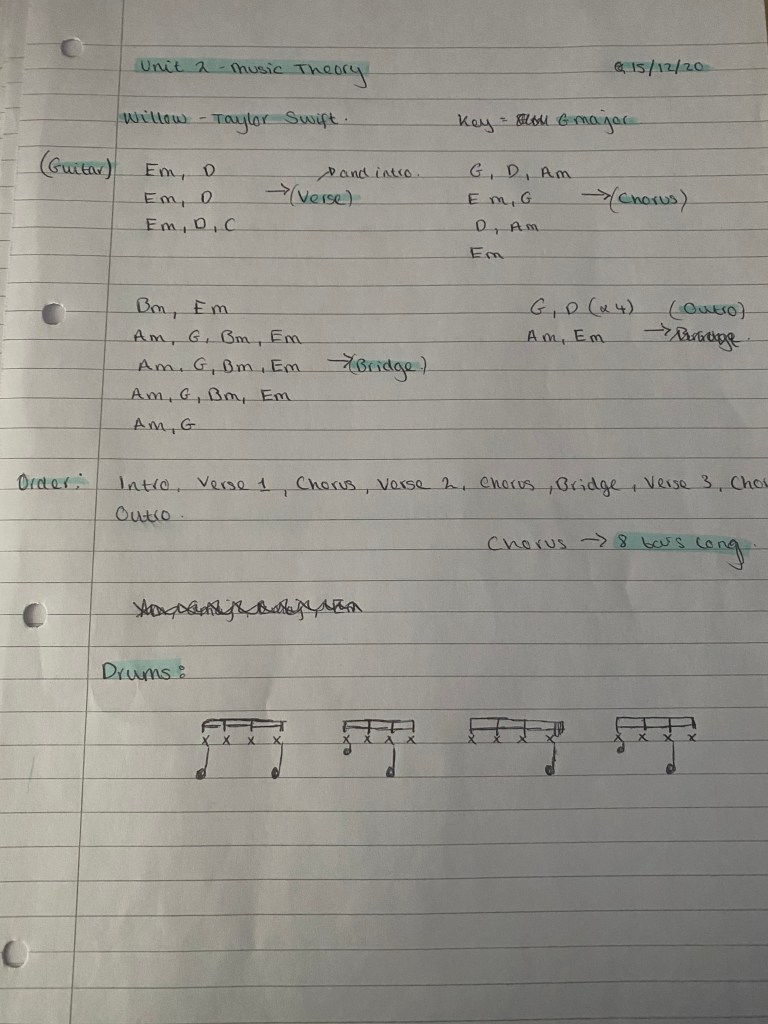 Unit 2 - Music Theory 15/12/20
Willow - Taylor Swift. Key = G major
(Guitar) Em, D → and intro. G, D, Am
Em, D → (Verse) Em, G → (Chorus)
Em, D, C D, Am
Em
Bm, Em G, D (x4) (Outro)
Am, G, Bm, Em Am, Em →
Am, G, Bm, Em → (Bridge)
Am, G, Bm, Em
Am, G
Order: Intro, Verse 1, Chorus, Verse 2, Chorus, Bridge, Verse 3, Cho
Outro.
Chorus → 8 bars long.
Drums: